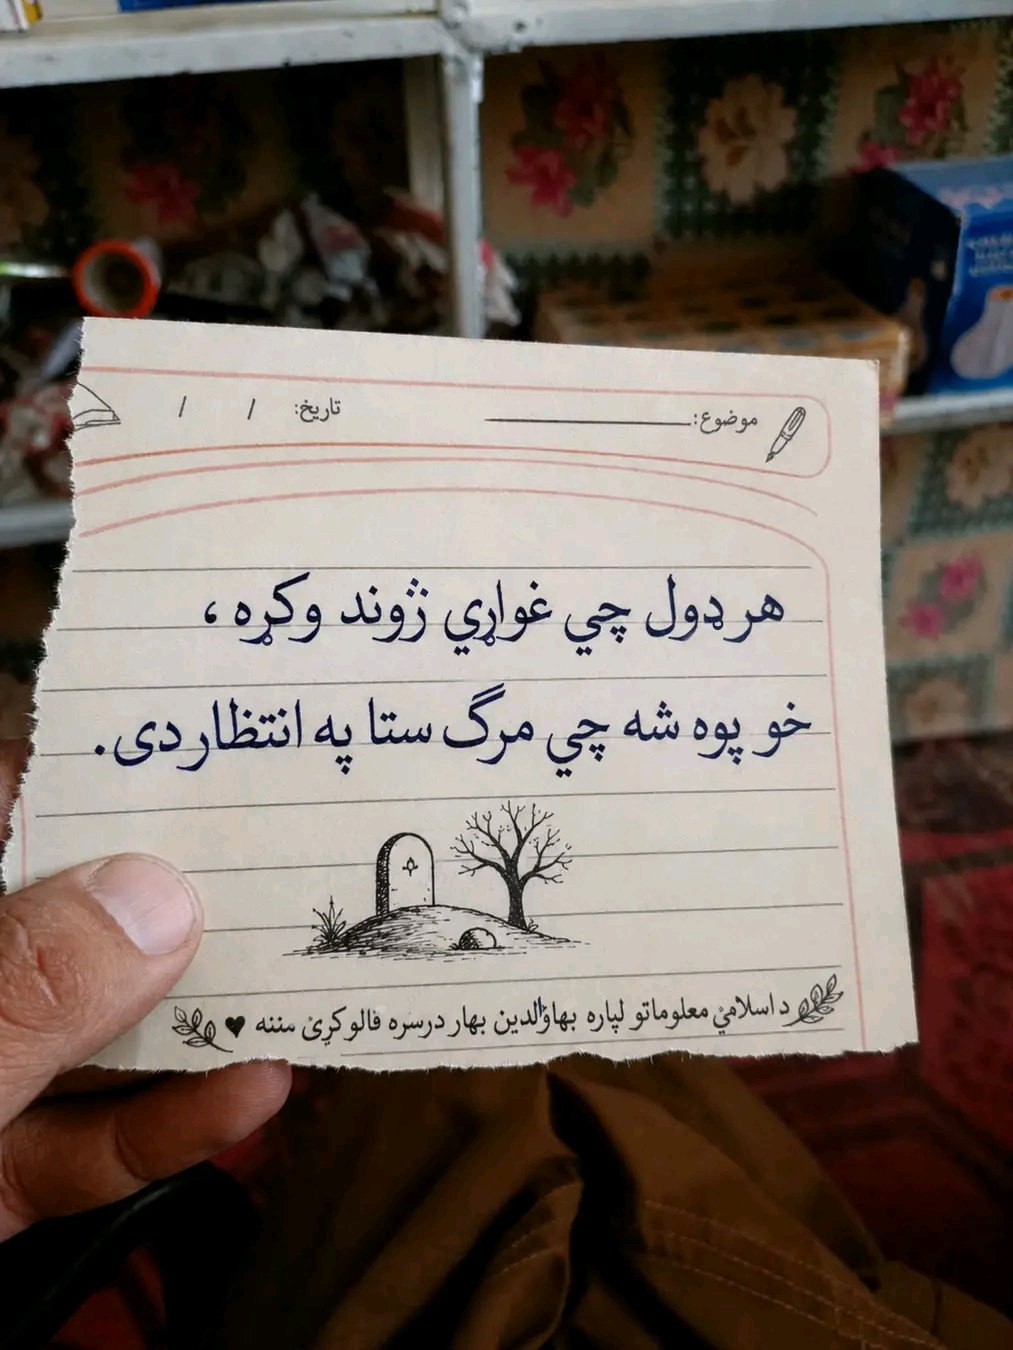 موضوع:
تاریخ: / /
هر ډول چي غواړي ژوند وکړه ،
خو پوه شه چي مرګ ستا په انتظار دی.
د اسلامي معلوماتو لپاره بهاؤالدین بهار درسره فالو کړئ مننه ♥